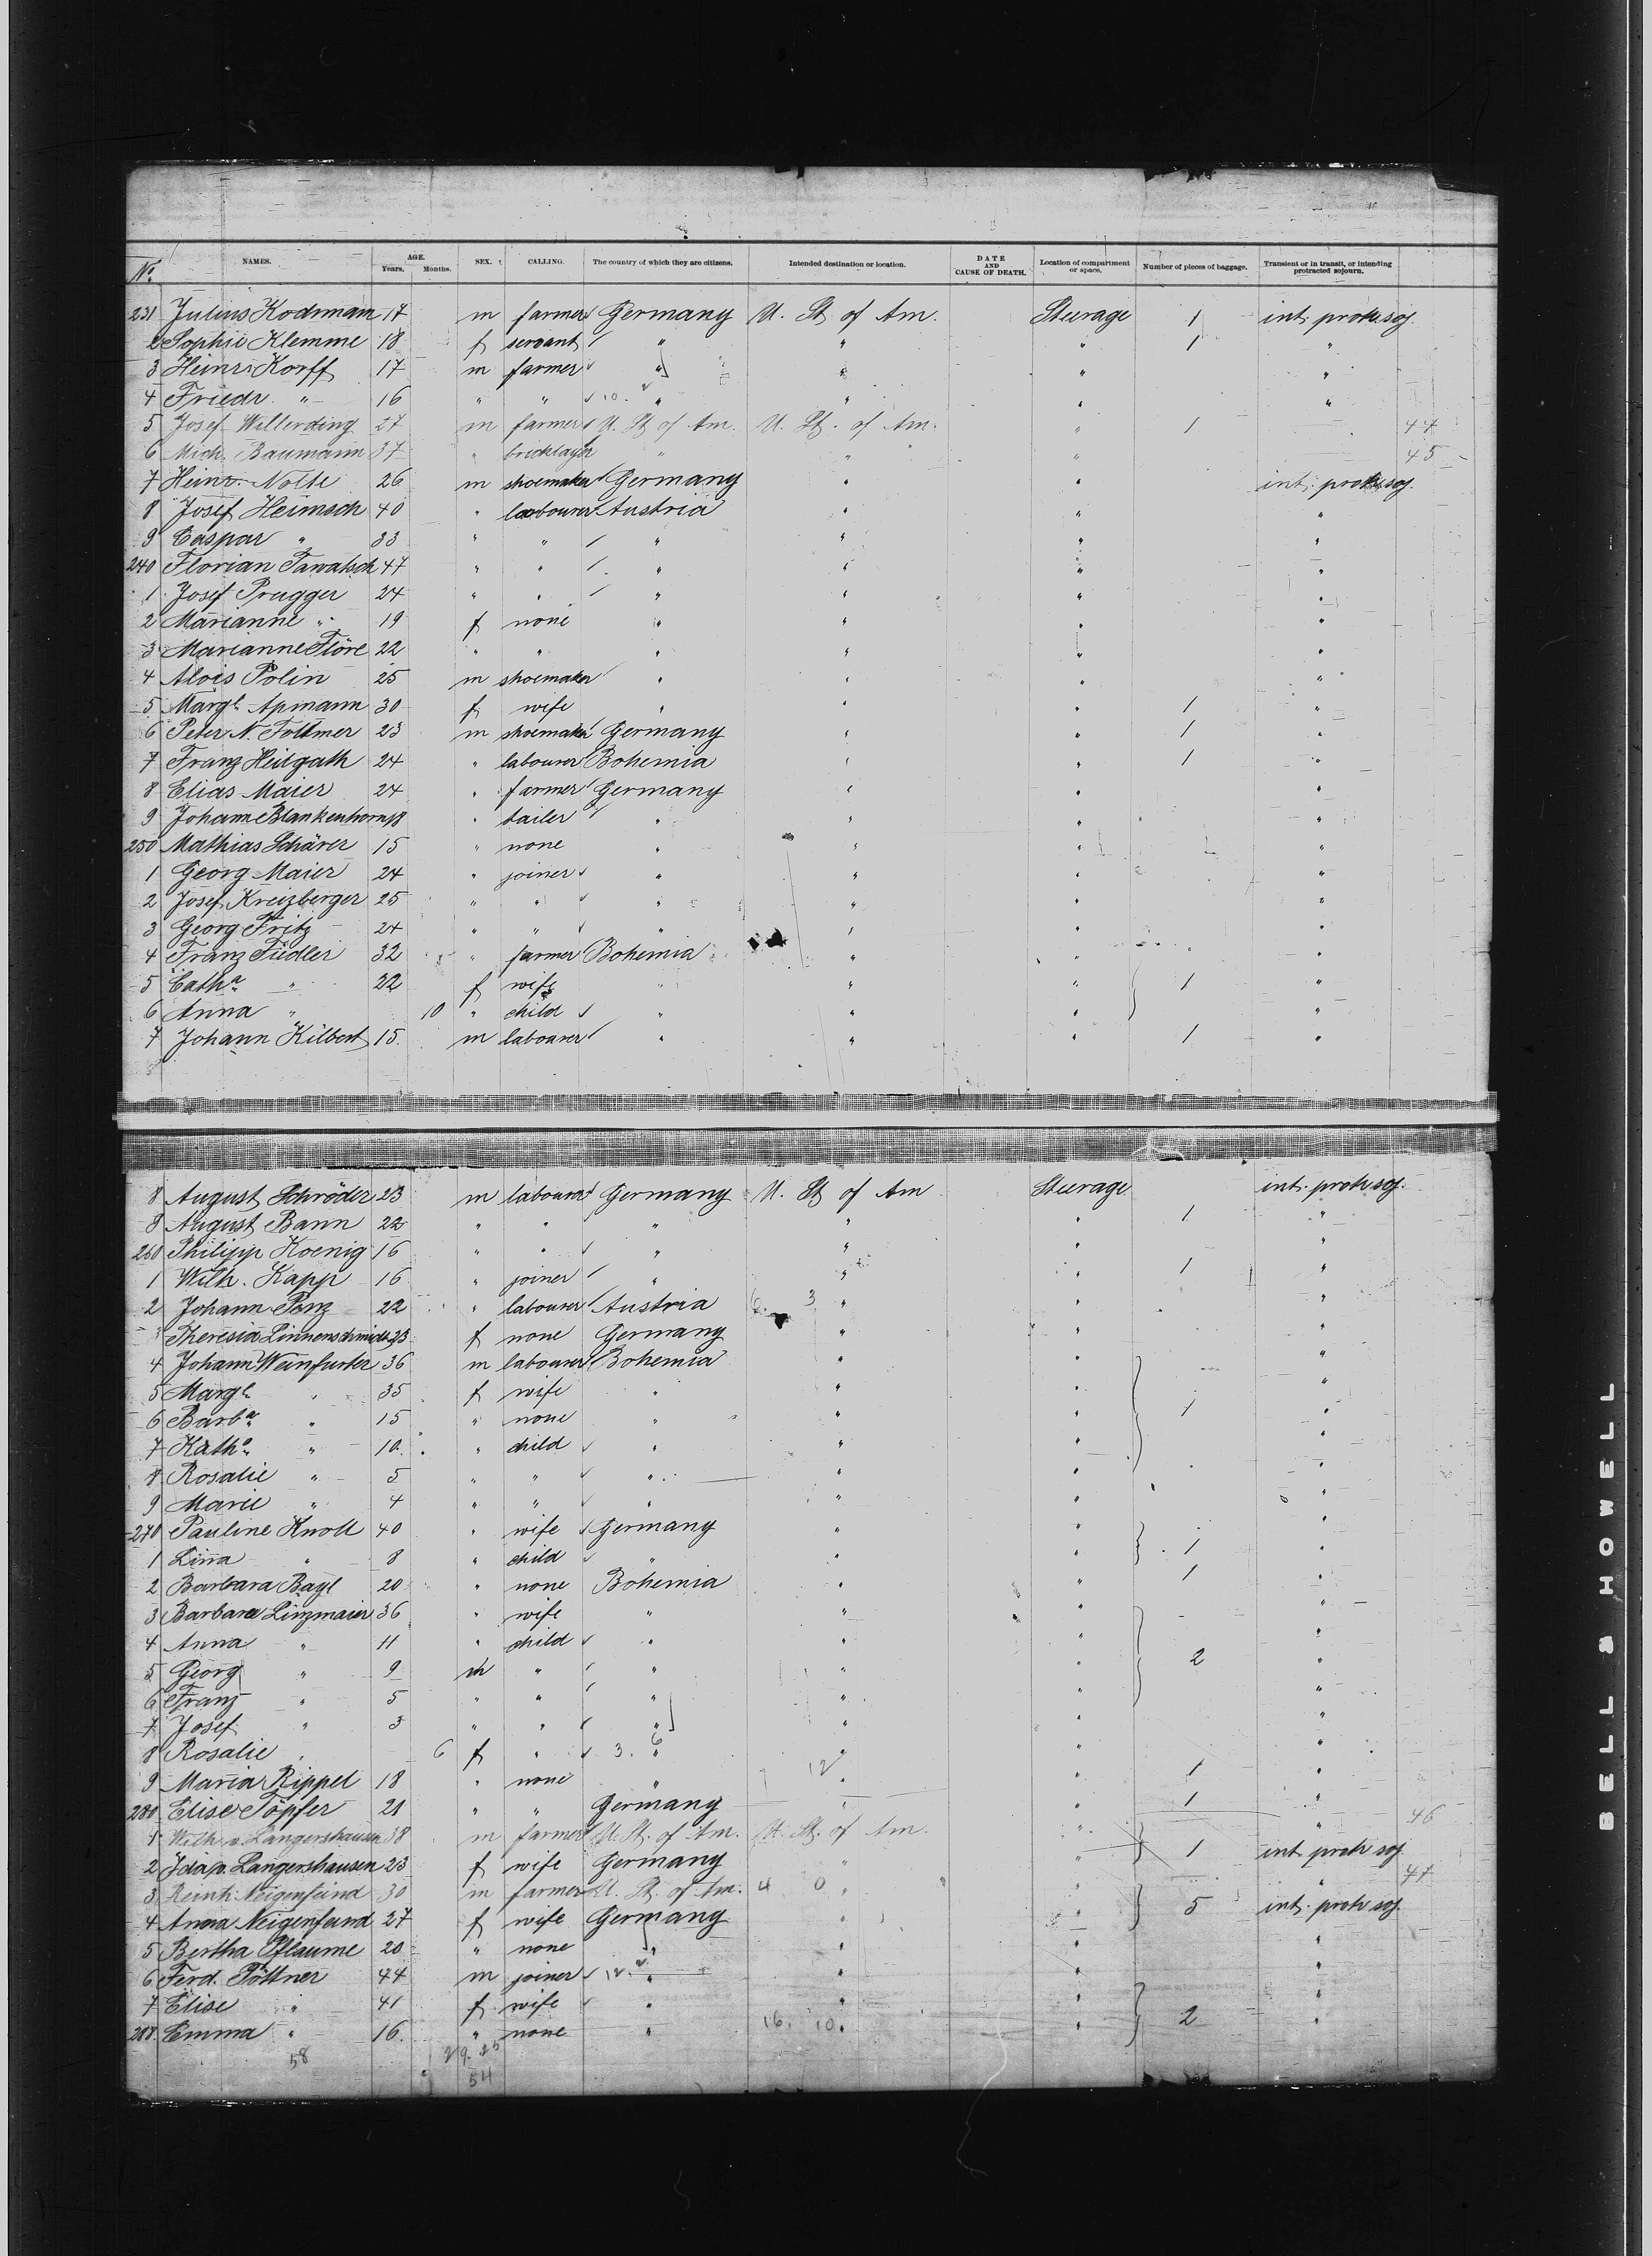 No. NAMES. AGE. Years. Months. SEX. CALLING. The country of which they are citizens. Intended destination or location. DATE AND CAUSE OF DEATH. Location of compartment or space. Number of pieces of baggage. Transient or in transit, or intending protracted sojourn.
231 Julius Kodrmann 17 m farmer Germany U. St of Am. Steerage 1 int. protr. soj.
2 Sophie Klemme 18 f servant " " " 1 "
3 Heinr. Korff 17 m farmer " " " "
4 Friedr. " 16 " " 10. " " " "
5 Josef Willerding 27 m farmer U. St of Am. U. St. of Am. " 1 44
6 Mich. Baumann 37 " bricklayer " " " 45
7 Heinr. Nolte 26 m shoemaker Germany " " int. protr. soj.
8 Josef Heimsch 40 " labourer Austria " " "
9 Caspar " 33 " " " " " "
240 Florian Tawatsch 47 " " " " " "
1 Josef Prugger 24 " " " " " "
2 Marianne " 19 f none " " " "
3 Marianne Flöre 22 " " " " " "
4 Alois Polin 25 m shoemaker " " " "
5 Margt. Apmann 30 f wife " " " 1 "
6 Peter N. Follmer 23 m shoemaker Germany " " 1 "
7 Franz Heilgath 24 " labourer Bohemia " " 1 "
8 Elias Maier 24 " farmer Germany " " "
9 Johann Blankenhorn 18 " tailer " " " "
250 Mathias Schärer 15 " none " " " "
1 Georg Maier 24 " joiner " " " "
2 Josef Kreizberger 25 " " " " " "
3 Georg Fritz 24 " " " " " "
4 Franz Fiedler 32 " farmer Bohemia " " "
5 Catha. " 22 f wife " " " 1 "
6 Anna " 10 " child " " " "
7 Johann Kilbert 15 m labourer " " " 1 "
8 August Schröder 23 m labourer Germany U. St of Am Steerage int. protr. soj.
9 August Bann 22 " " " " " 1 "
260 Philipp Koenig 16 " " " " " "
1 Wilh. Kapp 16 " joiner " " " 1 "
2 Johann Penz 22 " labourer Austria 6. 3 " " "
Theresia Linnenschmidt 23 f none Germany " " "
4 Johann Weinfurter 36 m labourer Bohemia " " "
5 Margt. " 35 f wife " " " "
6 Barba. " 15 " none " " " 1 "
7 Katha. " 10 " child " " " "
8 Rosalie " 5 " " " " " "
9 Marie " 4 " " " " " "
270 Pauline Knoll 40 " wife Germany " " "
1 Lina " 8 " child " " " 1 "
2 Barbara Bayl 20 " none Bohemia " " 1 "
3 Barbara Linzmaier 36 " wife " " " "
4 Anna " 11 " child " " " "
5 Georg " 9 m " " " " 2 "
6 Franz " 5 " " " " " "
7 Josef " 3 " " " " " "
8 Rosalie " 6 f " 3. 6 " " " "
9 Maria Rippel 18 " none " 12 " " 1 "
280 Elise Töpfer 21 " " Germany " " 1 "
1 Wilh. v. Langershausen 38 m farmer U. St. of Am. U. St. of Am. " " 46
2 Ida v. Langershausen 23 f wife Germany " " 1 int. protr. soj.
3 Reinh. Neigenfeind 30 m farmer U. St. of Am. 4 0 " " " 47
4 Anna Neigenfeind 27 f wife Germany " " 5 int. protr. soj.
5 Bertha Pflaume 20 " none " " " "
6 Ferd. Pöttner 44 m joiner 12. " " " "
7 Elise " 41 f wife " " " "
288. Emma " 16. " none " 16. 10. " " 2 "
58 29. 25
54
BELL & HOWELL